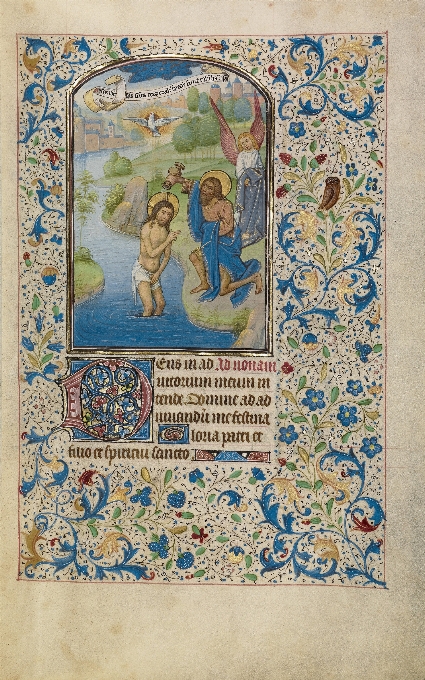 Eus in ad Ad nonam
iutorium meum in
tende Domine ad ad
iuuandū me festina
loria patri et
filio et spiritui sancto